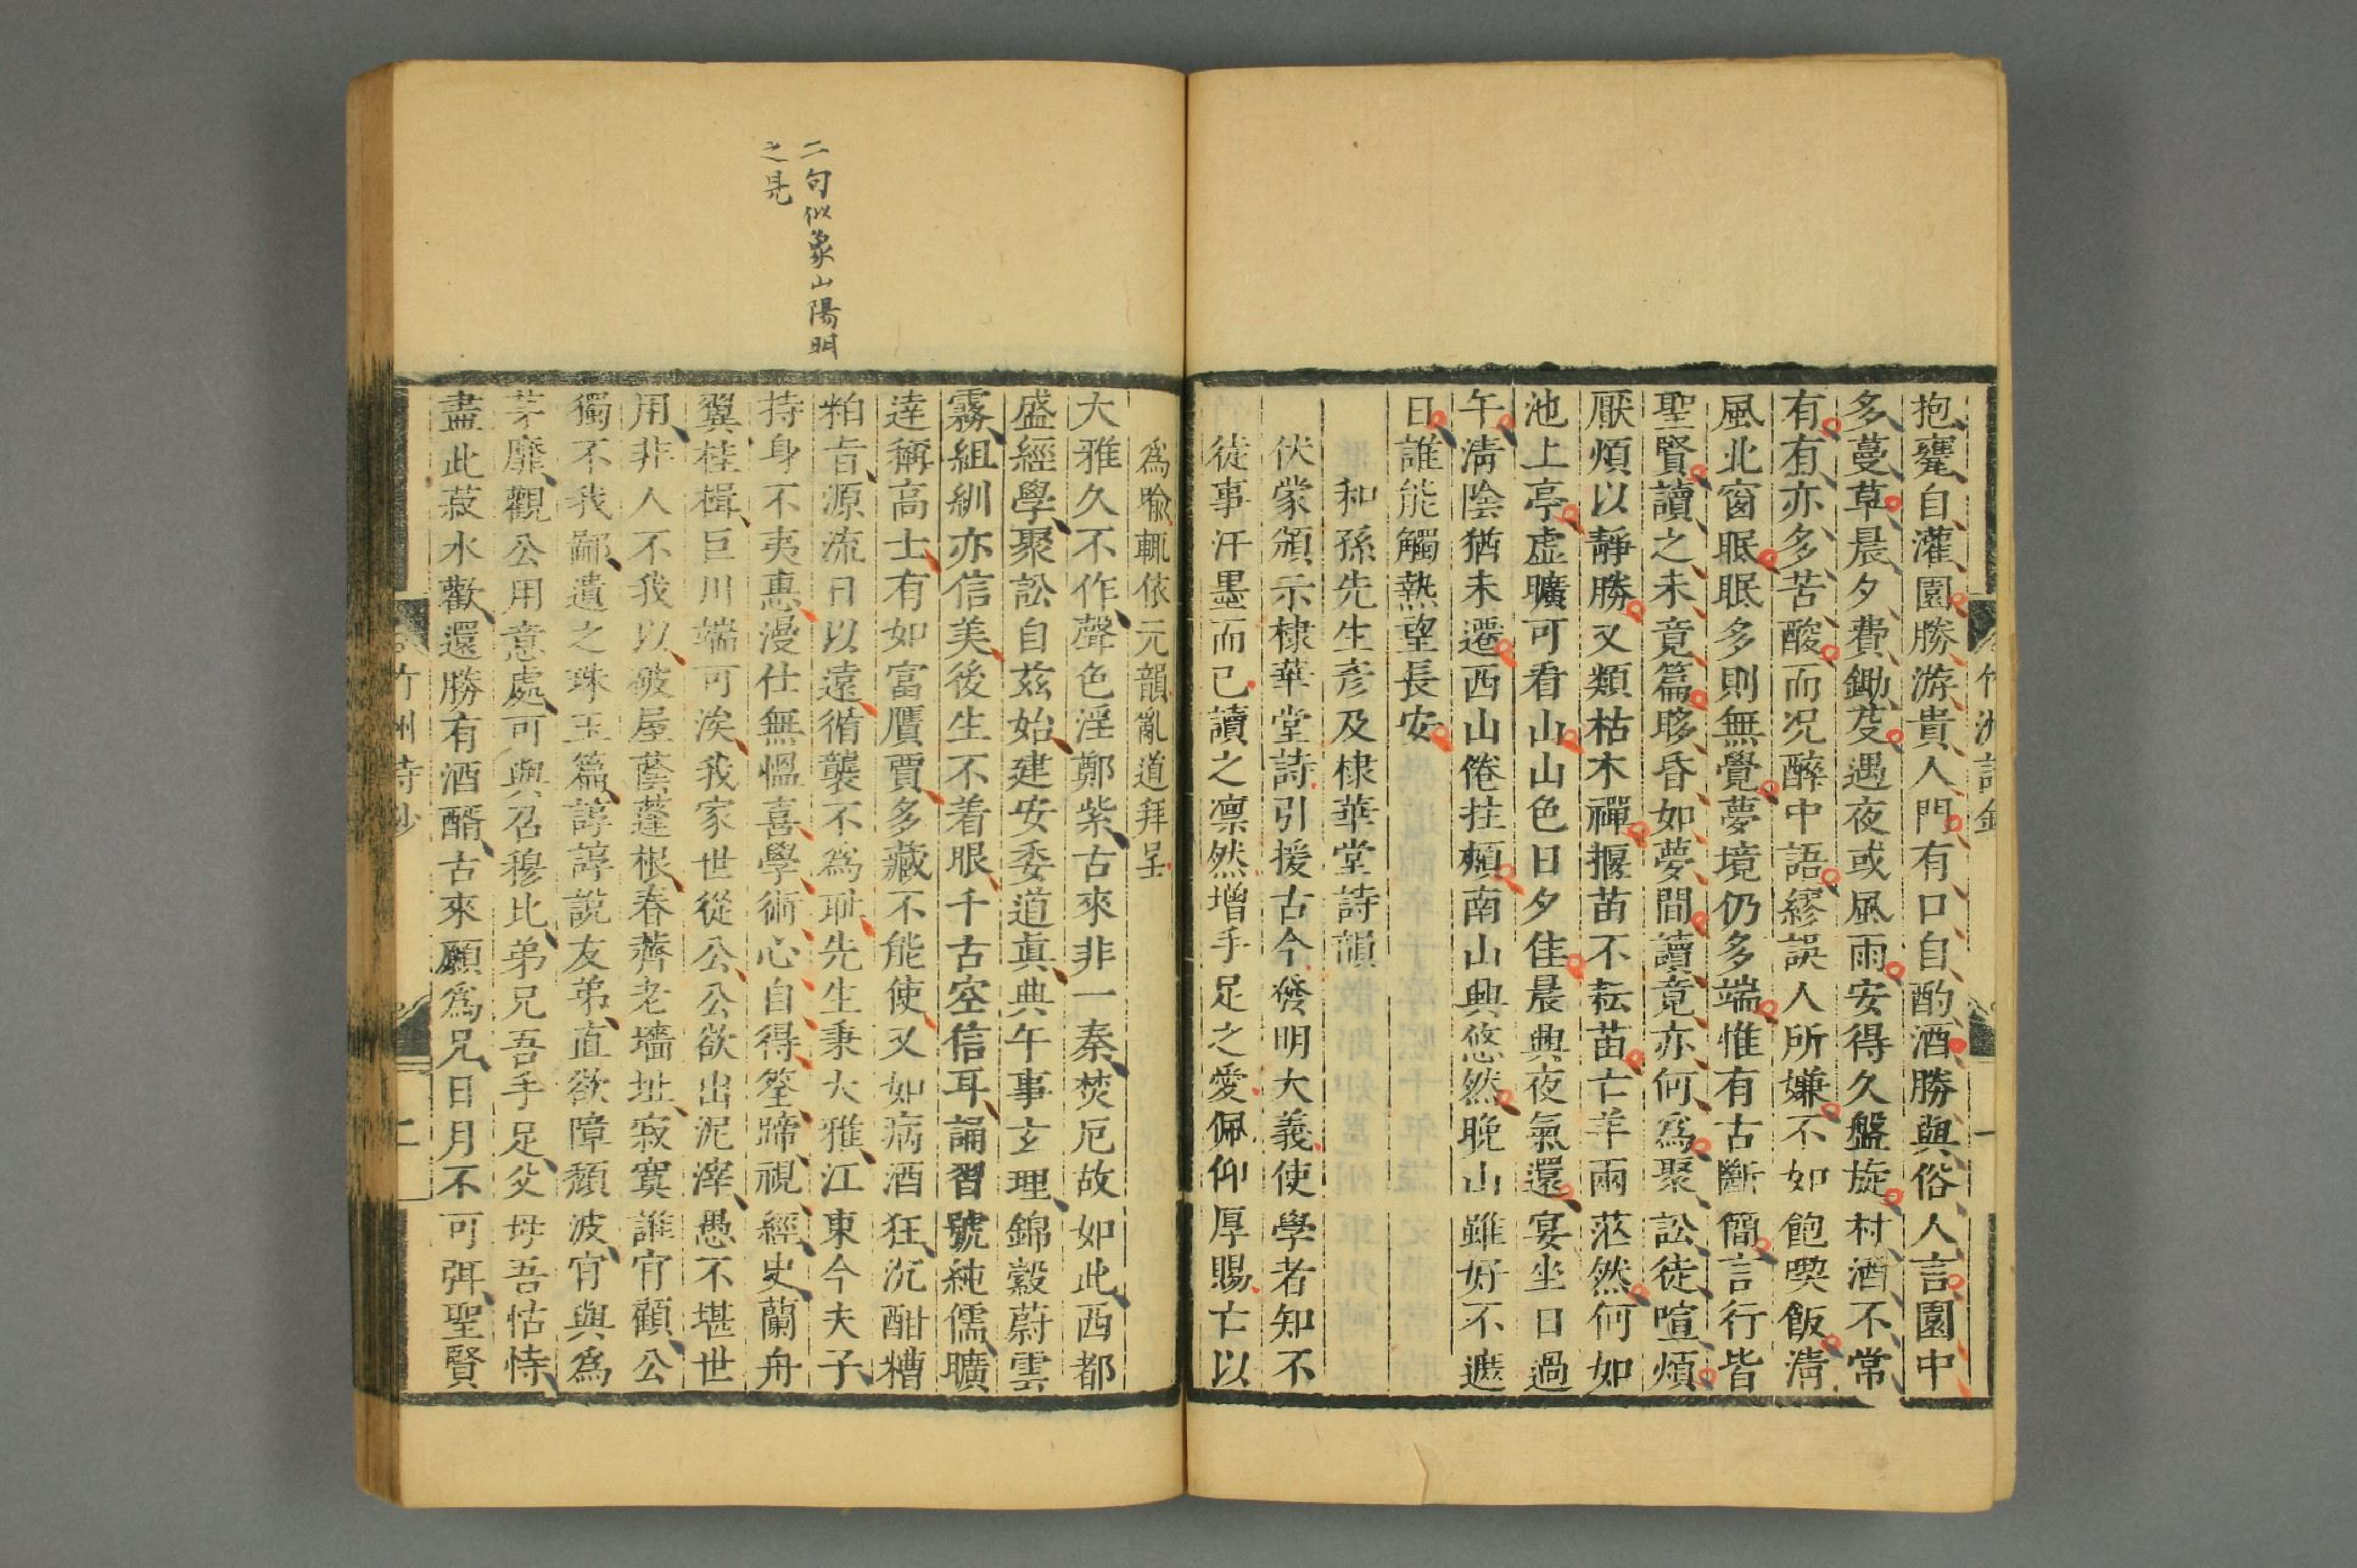 竹洲詩鈔
一
抱甕自灌園勝游貴人門有口自酌酒勝與俗人言園中
多蔓草晨夕費鋤芟遇夜或風雨安得久盤旋村酒不常
有有亦多苦酸而况醉中語繆誤人所嫌不如飽喫飯清
風北窗眠眠多則無覺夢境仍多端惟有古斷簡言行皆
聖賢讀之未竟篇眵昏如夢間讀竟亦何爲聚訟徒喧煩
厭煩以靜勝又類枯木禪揠苗不耘苗亡羊兩茫然何如
池上亭虛曠可看山山色日夕佳晨興夜氣還宴坐日過
午清陰猶未遷西山倦拄頰南山興悠然晚山雖好不遮
日誰能觸熱望長安
和孫先生彥及棣華堂詩韻
伏蒙頒示棣華堂詩引援古今發明大義使學者知不
徒事汗墨而已讀之凛然增手足之愛佩仰厚賜亡以
二句似象山陽明
之見
爲喻輒依元韻亂道拜呈
大雅久不作聲色淫鄭紫古來非一秦焚厄故如此西都
盛經學聚訟自茲始建安委道眞典午事玄理錦縠蔚雲
霧組紃亦信美後生不着眼千古空信耳誦習號純儒曠
達稱高士有如富贋賈多藏不能使又如病酒狂沉酣糟
粕旨源流日以遠循襲不爲耻先生秉大雅江東今夫子
持身不夷惠漫仕無慍喜學術心自得筌蹄視經史蘭舟
翼桂楫巨川端可涘我家世從公公欲出泥滓愚不堪世
用非人不我以破屋蔭蓬根春薺老墻址寂寞誰肯顧公
獨不我鄙遺之珠玉篇諄諄說友弟直欲障頽波肯與爲
茅靡觀公用意處可與召穆比弟兄吾手足父母吾怙恃
盡此菽水歡還勝有酒醑古來願爲兄日月不可弭聖賢
竹洲詩鈔
二